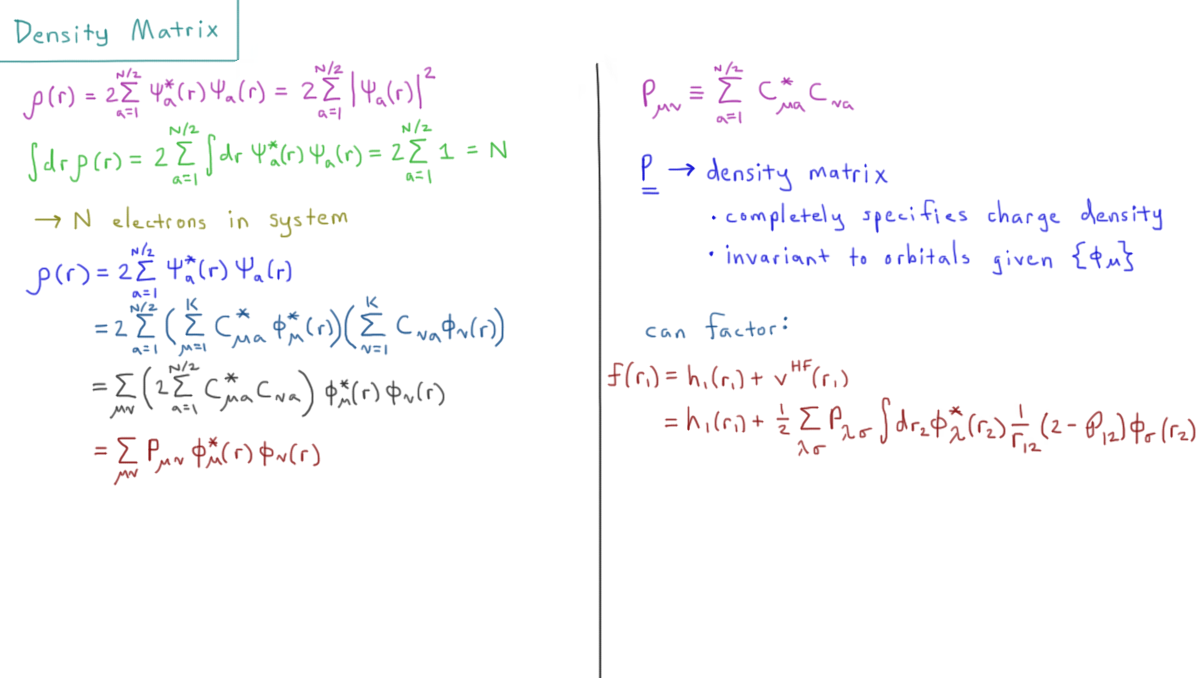 Density Matrix
ρ(r) = 2 Σ_{a=1}^{N/2} Ψ_a^*(r) Ψ_a(r) = 2 Σ_{a=1}^{N/2} |Ψ_a(r)|^2
∫dr ρ(r) = 2 Σ_{a=1}^{N/2} ∫dr Ψ_a^*(r) Ψ_a(r) = 2 Σ_{a=1}^{N/2} 1 = N
→ N electrons in system
ρ(r) = 2 Σ_{a=1}^{N/2} Ψ_a^*(r) Ψ_a(r)
= 2 Σ_{a=1}^{N/2} (Σ_{μ=1}^{K} C_{μa}^* φ_μ^*(r)) (Σ_{ν=1}^{K} C_{νa} φ_ν(r))
= Σ_{μν} (2 Σ_{a=1}^{N/2} C_{μa}^* C_{νa}) φ_μ^*(r) φ_ν(r)
= Σ_{μν} P_{μν} φ_μ^*(r) φ_ν(r)
P_{μν} ≡ Σ_{a=1}^{N/2} C_{μa}^* C_{νa}
P → density matrix
· completely specifies charge density
· invariant to orbitals given {φ_μ}
can factor:
f(r₁) = h₁(r₁) + v^{HF}(r₁)
= h₁(r₁) + 1/2 Σ_{λσ} P_{λσ} ∫dr₂ φ_λ^*(r₂) 1/r₁₂ (2 - 𝒫₁₂) φ_σ(r₂)